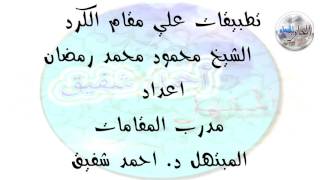 تطبيقات علي مقام الكرد
الشيخ محمود محمد رمضان
اعداد
مدرب المقامات
المبتهل د. احمد شفيق